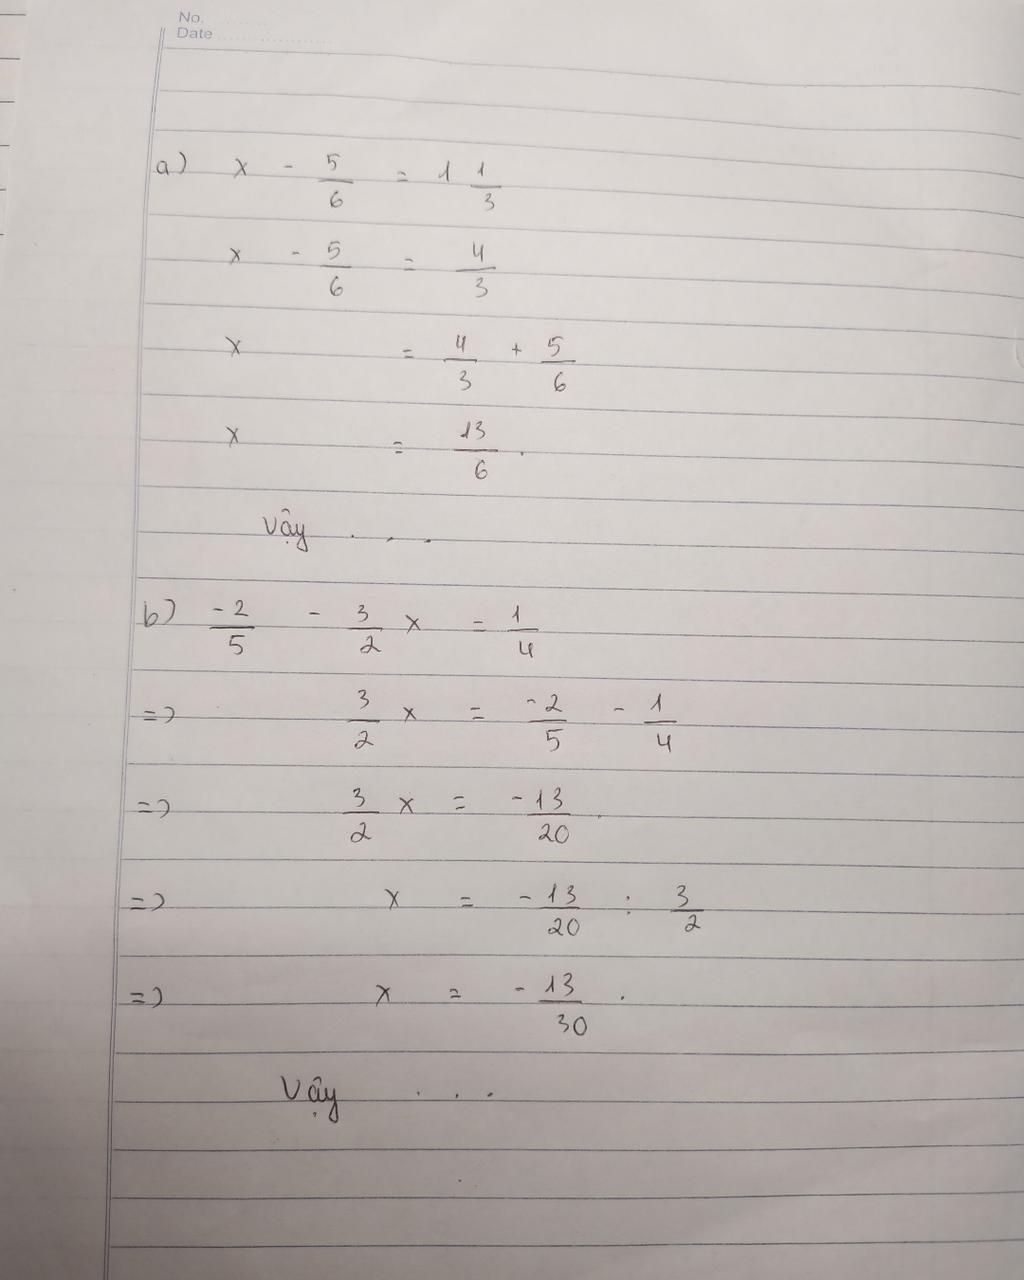 No.
Date
a) x - 5/6 = 1 1/3
x - 5/6 = 4/3
x = 4/3 + 5/6
x = 13/6 .
Vậy . . .
b) -2/5 - 3/2 x = 1/4
=> 3/2 x = -2/5 - 1/4
=> 3/2 x = -13/20 .
=> x = -13/20 : 3/2
=> x = -13/30 .
Vậy . . .